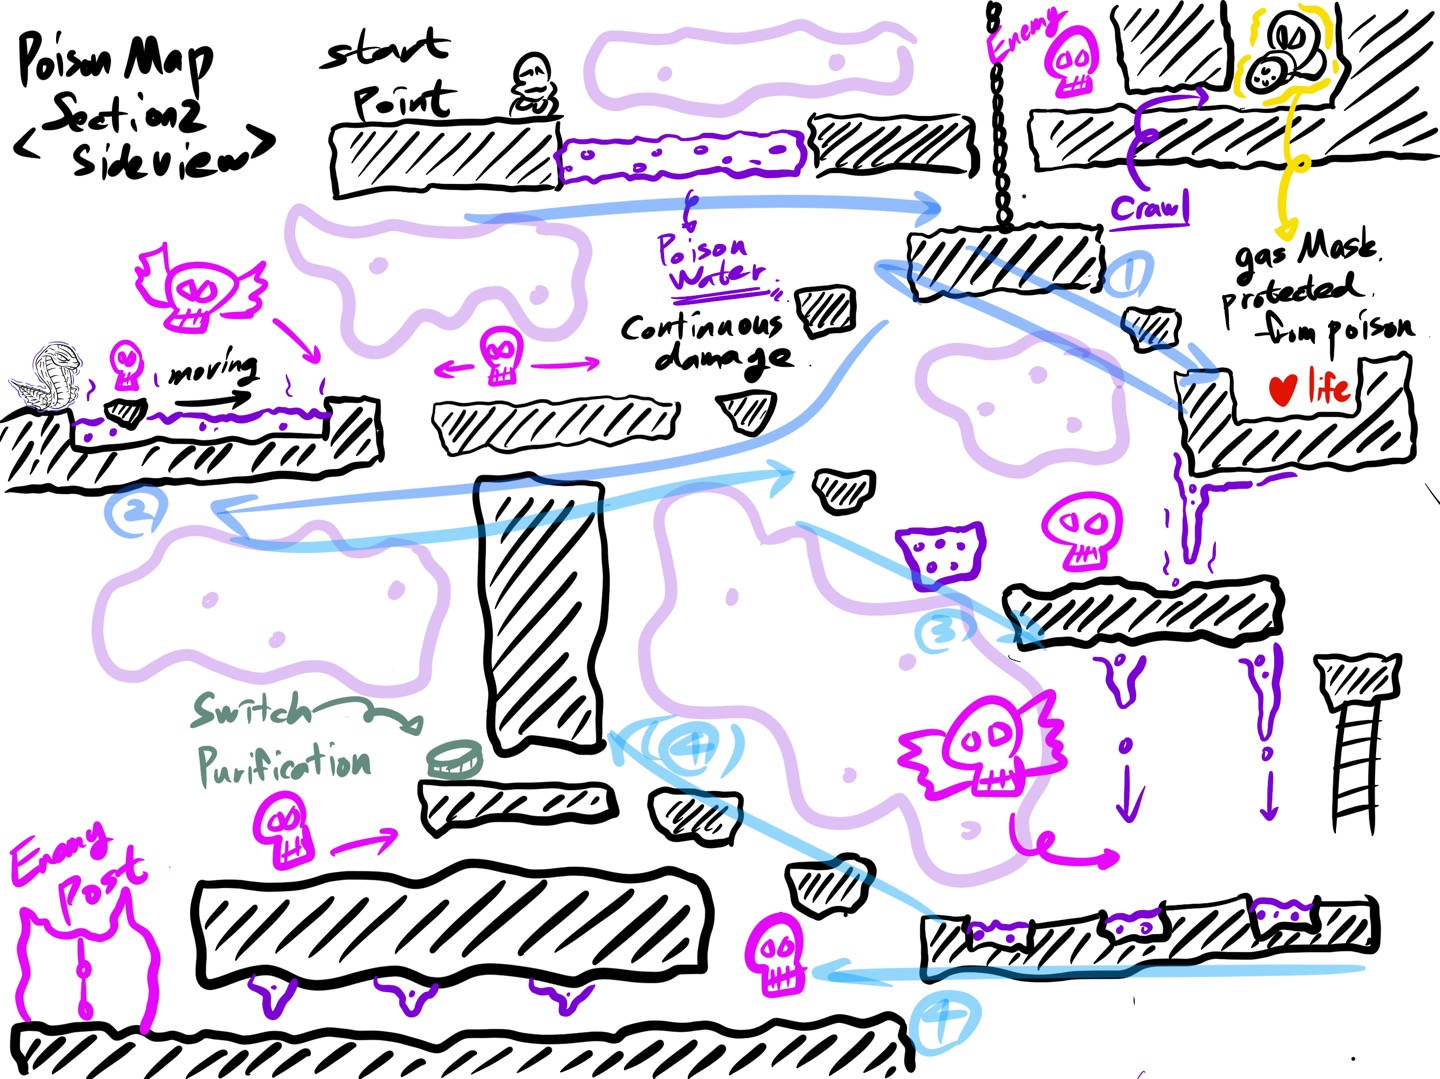 Poison Map
Section2
<Sideview>
start
Point
Enemy
Crawl
gas Mask.
protected.
from poison
life
Poison
Water.
Continuous
damage
①
moving
②
③
Switch
Purification
(④)
Enemy
Post
④